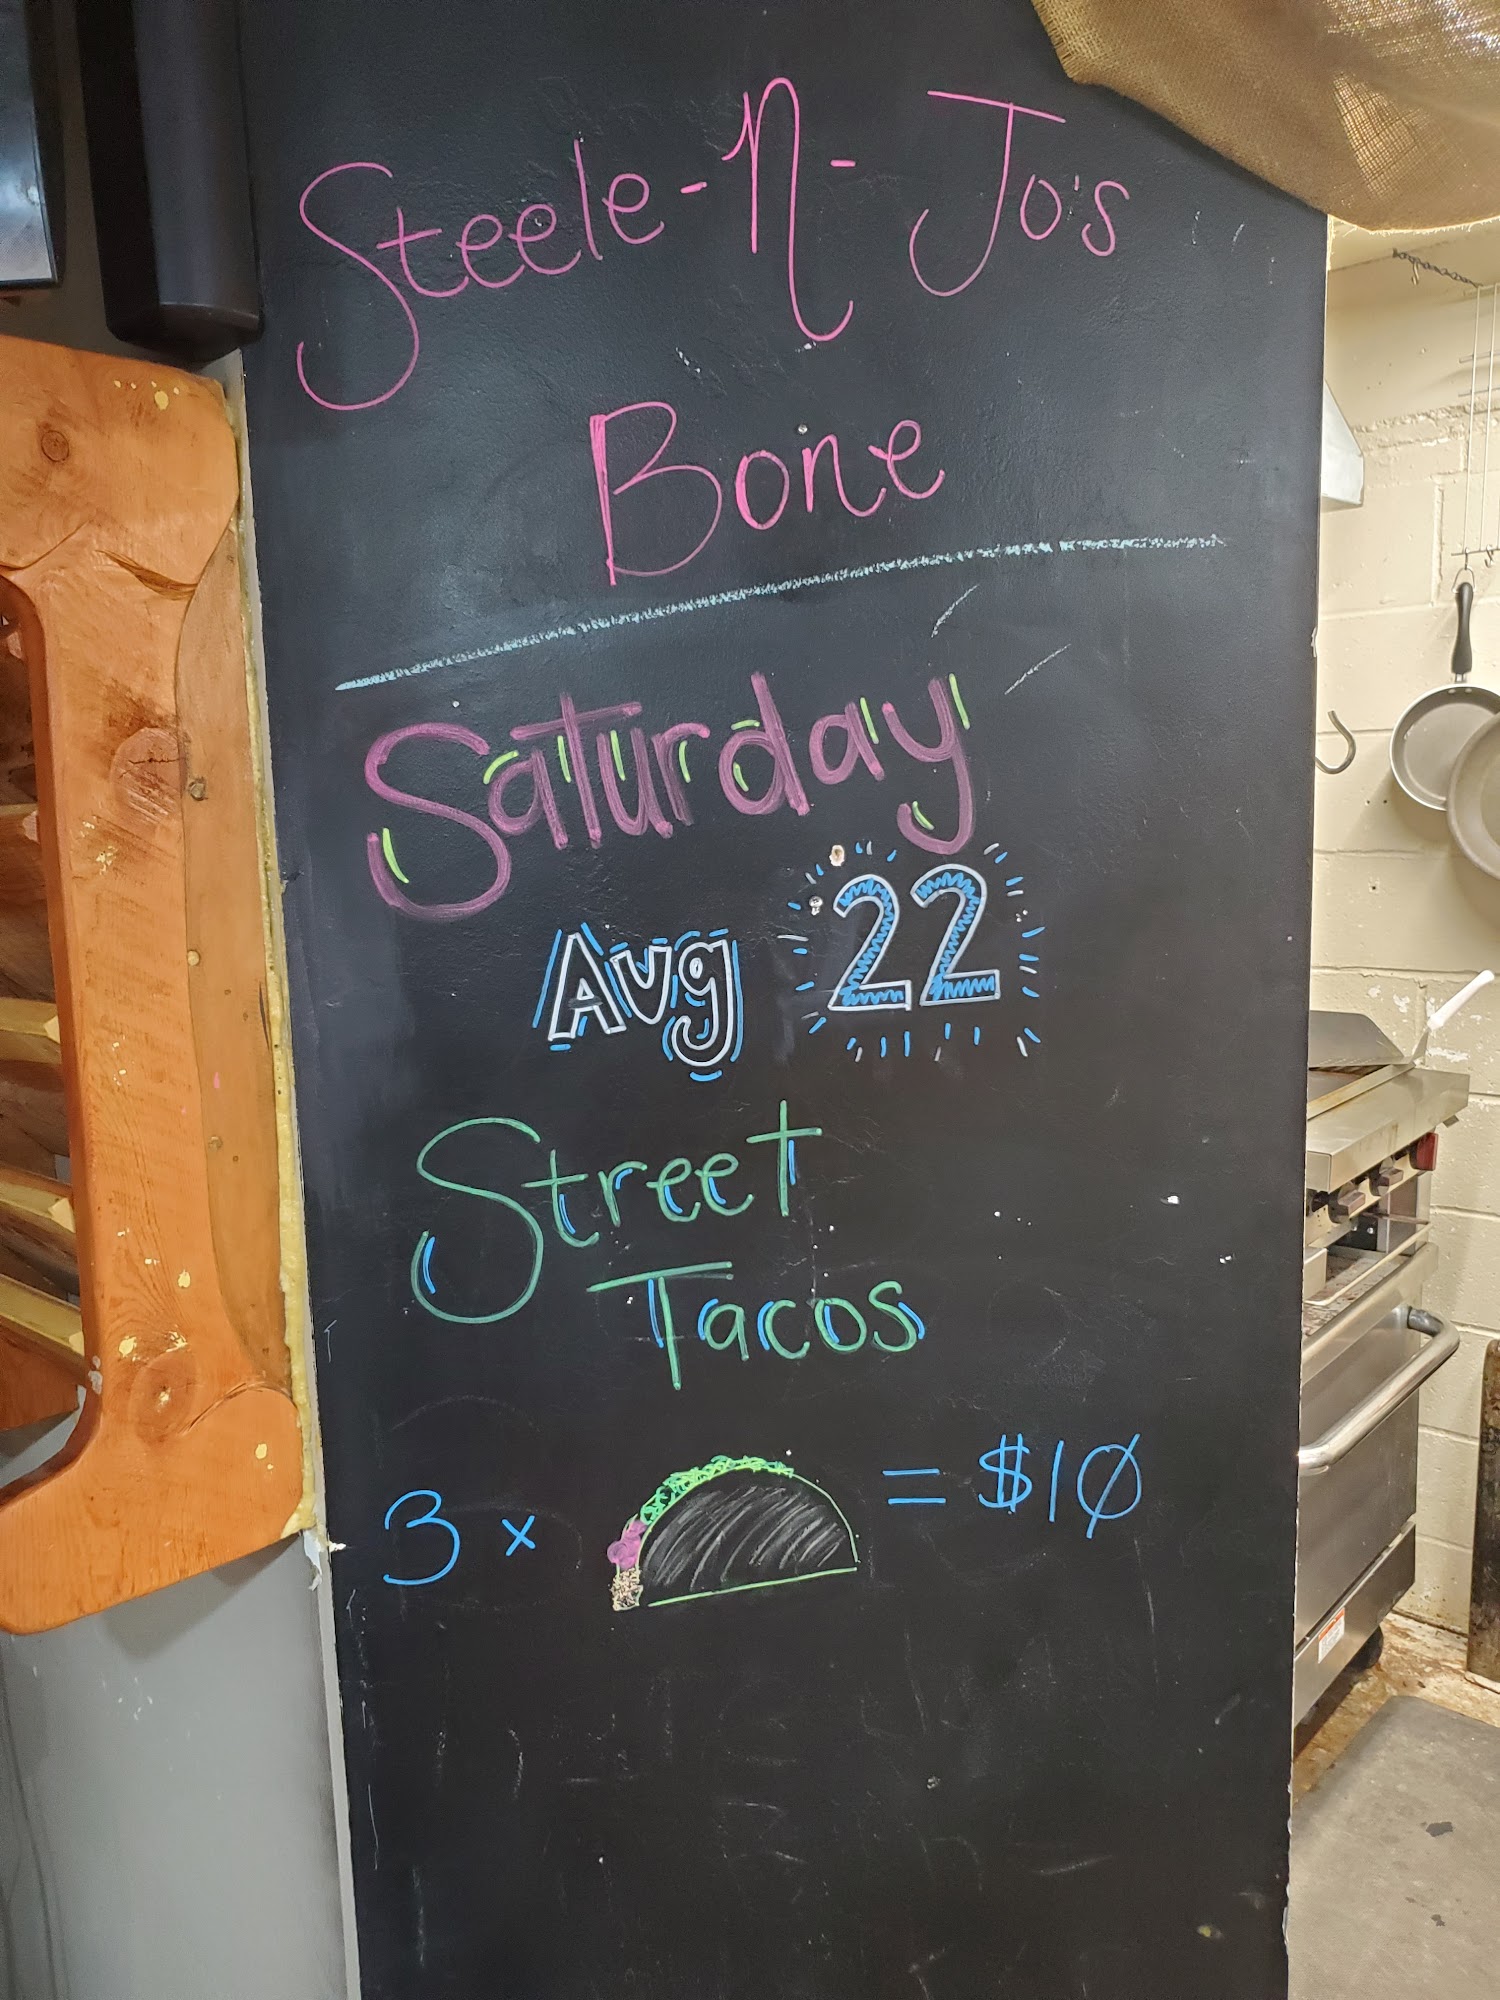 Steele-N-Jo's
Bone
Saturday
Aug 22
Street
Tacos
3 x = $10